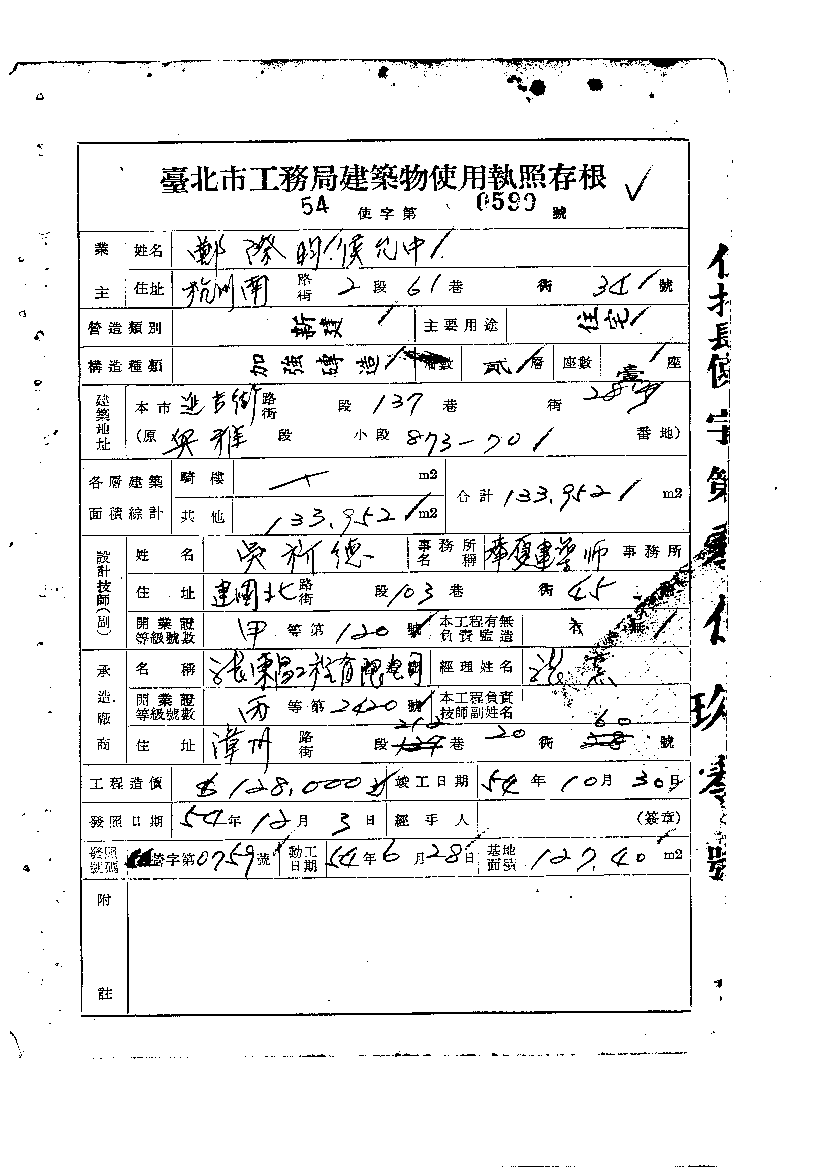 臺北市工務局建築物使用執照存根
54 使字第 0590 號
業主 姓名 鄭際昀 侯允中
住址 杭州南 路街 2 段 61 巷 衖 34 號
營造類別 新建 主要用途 住宅
構造種類 加強磚造 層數 貳 層 座數 壹 座
建築地址 本市 延吉街 路街 段 137 巷 衖 28號
(原 興雅 段 小段 873-70 番地)
各層建築面積綜計 騎樓 m2 合計 133.952 m2
其他 133.952 m2
設計技師(副) 姓名 吳祈德 事務所名稱 華廈建築師 事務所
住址 建國北 路街 段 103 巷 衖 45
開業證等級號數 甲 等第 120 號 本工程有無負責監造 有 無
承造廠商 名稱 工程有限公司 經理姓名 張
開業證等級號數 丙 等第 2420 號 本工程負責技師副姓名
住址 漳州 路街 段 212 巷 20 衖 60 號
工程造價 128,000 竣工日期 54 年 10 月 30 日
發照日期 54 年 12 月 3 日 經手人 (簽章)
發照號碼 營字第 0759 號 動工日期 54 年 6 月 28 日 基地面積 127.40 m2
附註